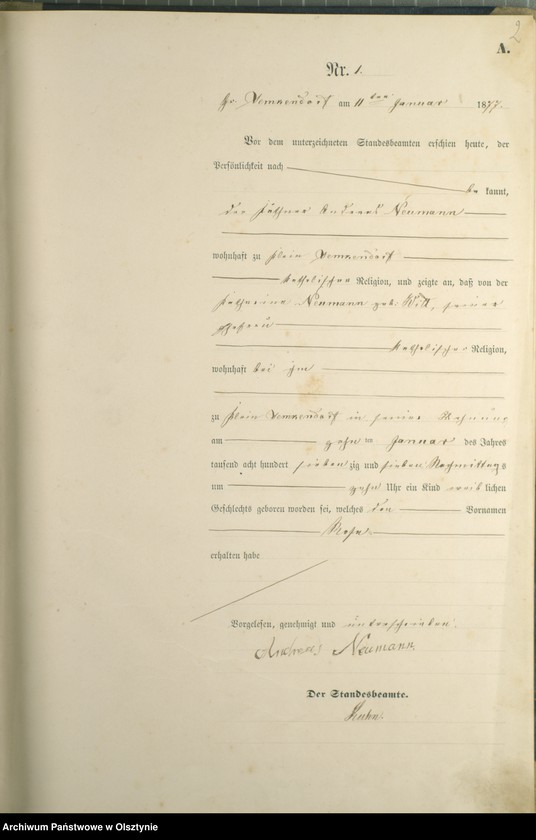 2
A.
Nr. 1.
Gr. Lemkendorf am 11ten Januar 1877.
Vor dem unterzeichneten Standesbeamten erschien heute, der
Persönlichkeit nach
be kannt,
der Käthner Andreas Neumann
wohnhaft zu Klein Lemkendorf
katholischer Religion, und zeigte an, daß von der
Katharina Neumann geb. Witt, seiner
Ehefrau
katholischer Religion,
wohnhaft bei ihm
zu Klein Lemkendorf in seiner Wohnung
am zehn ten Januar des Jahres
tausend acht hundert sieben zig und sieben Nachmittags
um zehn Uhr ein Kind weib lichen
Geschlechts geboren worden sei, welches den Vornamen
Rosa
erhalten habe
Vorgelesen, genehmigt und unterschrieben.
Andreas Neumann.
Der Standesbeamte.
Archiwum Państwowe w Olsztynie